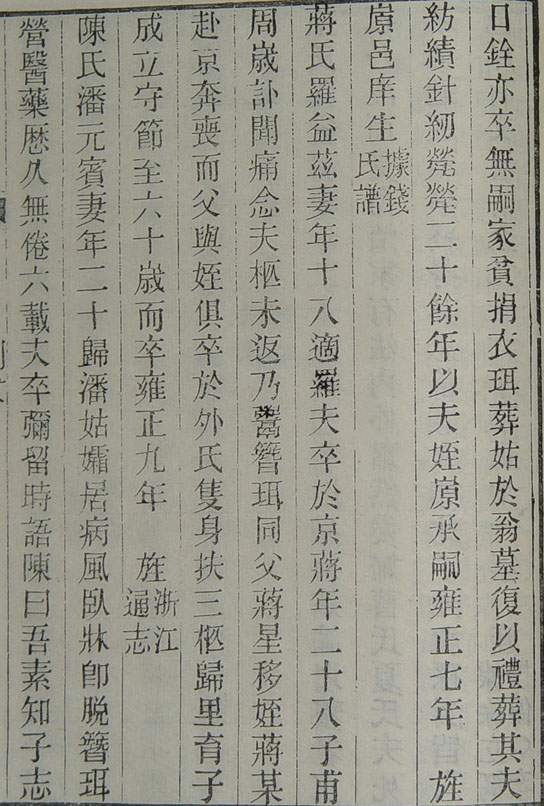 口銓亦卒無嗣家貧捐衣珥葬姑於翁墓復以禮葬其夫
紡績針紉煢煢三十餘年以夫姪原承嗣雍正七年 旌
原邑庠生據錢氏譜
蔣氏羅益茲妻年十八適羅夫卒於京蔣年二十八子甫
周歲訃聞痛念夫柩未返乃鬻簪珥同父蔣星移姪蔣某
赴京奔喪而父與姪俱卒於外氏隻身扶三柩歸里育子
成立守節至六十歲而卒雍正九年 旌浙江通志
陳氏潘元賓妻年二十歸潘姑孀居病風臥牀卽脫簪珥
營醫藥歷久無倦六載夫卒彌留時語陳曰吾素知子志